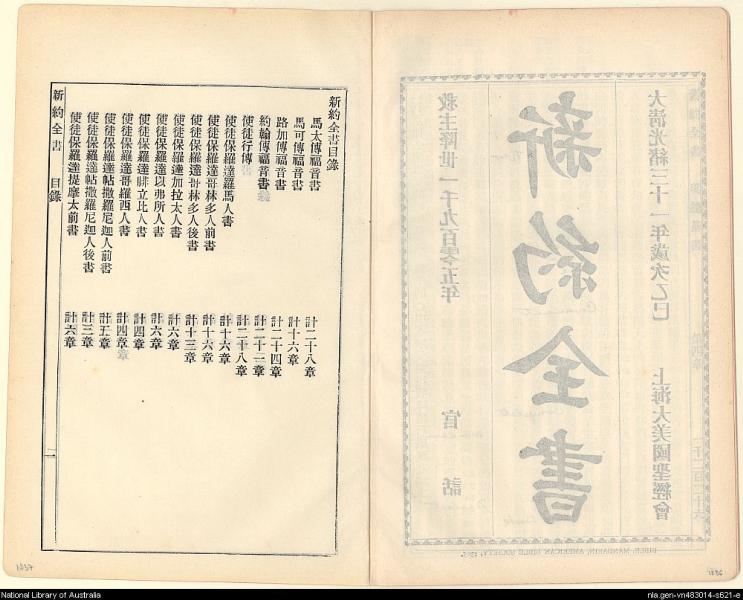 大清光緒三十一年歲次乙巳 上海大美國聖經會
新約全書
救主降世一千九百零五年 官話
BIBLE. MANDARIN, AMERICAN BIBLE SOCIETY, 1905.
新約全書目錄
馬太傳福音書 計二十八章
馬可傳福音書 計十六章
路加傳福音書 計二十四章
約翰傳福音書 計二十一章
使徒行傳 計二十八章
使徒保羅達羅馬人書 計十六章
使徒保羅達哥林多人前書 計十六章
使徒保羅達哥林多人後書 計十三章
使徒保羅達加拉太人書 計六章
使徒保羅達以弗所人書 計六章
使徒保羅達腓立比人書 計四章
使徒保羅達哥羅西人書 計四章
使徒保羅達帖撒羅尼迦人前書 計五章
使徒保羅達帖撒羅尼迦人後書 計三章
使徒保羅達提摩太前書 計六章
新約全書 目錄 一
1237
1236
National Library of Australia
nla.gen-vn483014-s621-e